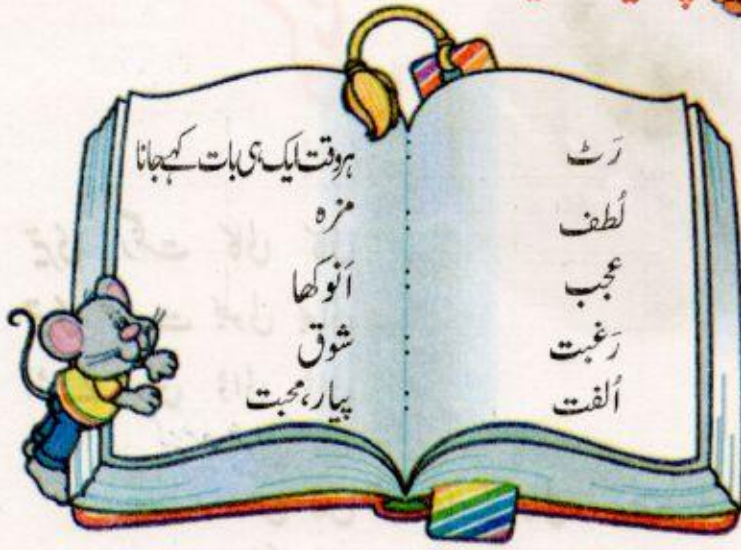 رَٹ : ہر وقت ایک ہی بات کہے جانا
لُطف : مزہ
عجب : اَنوکھا
رَغبت : شوق
اُلفت : پیار، محبت